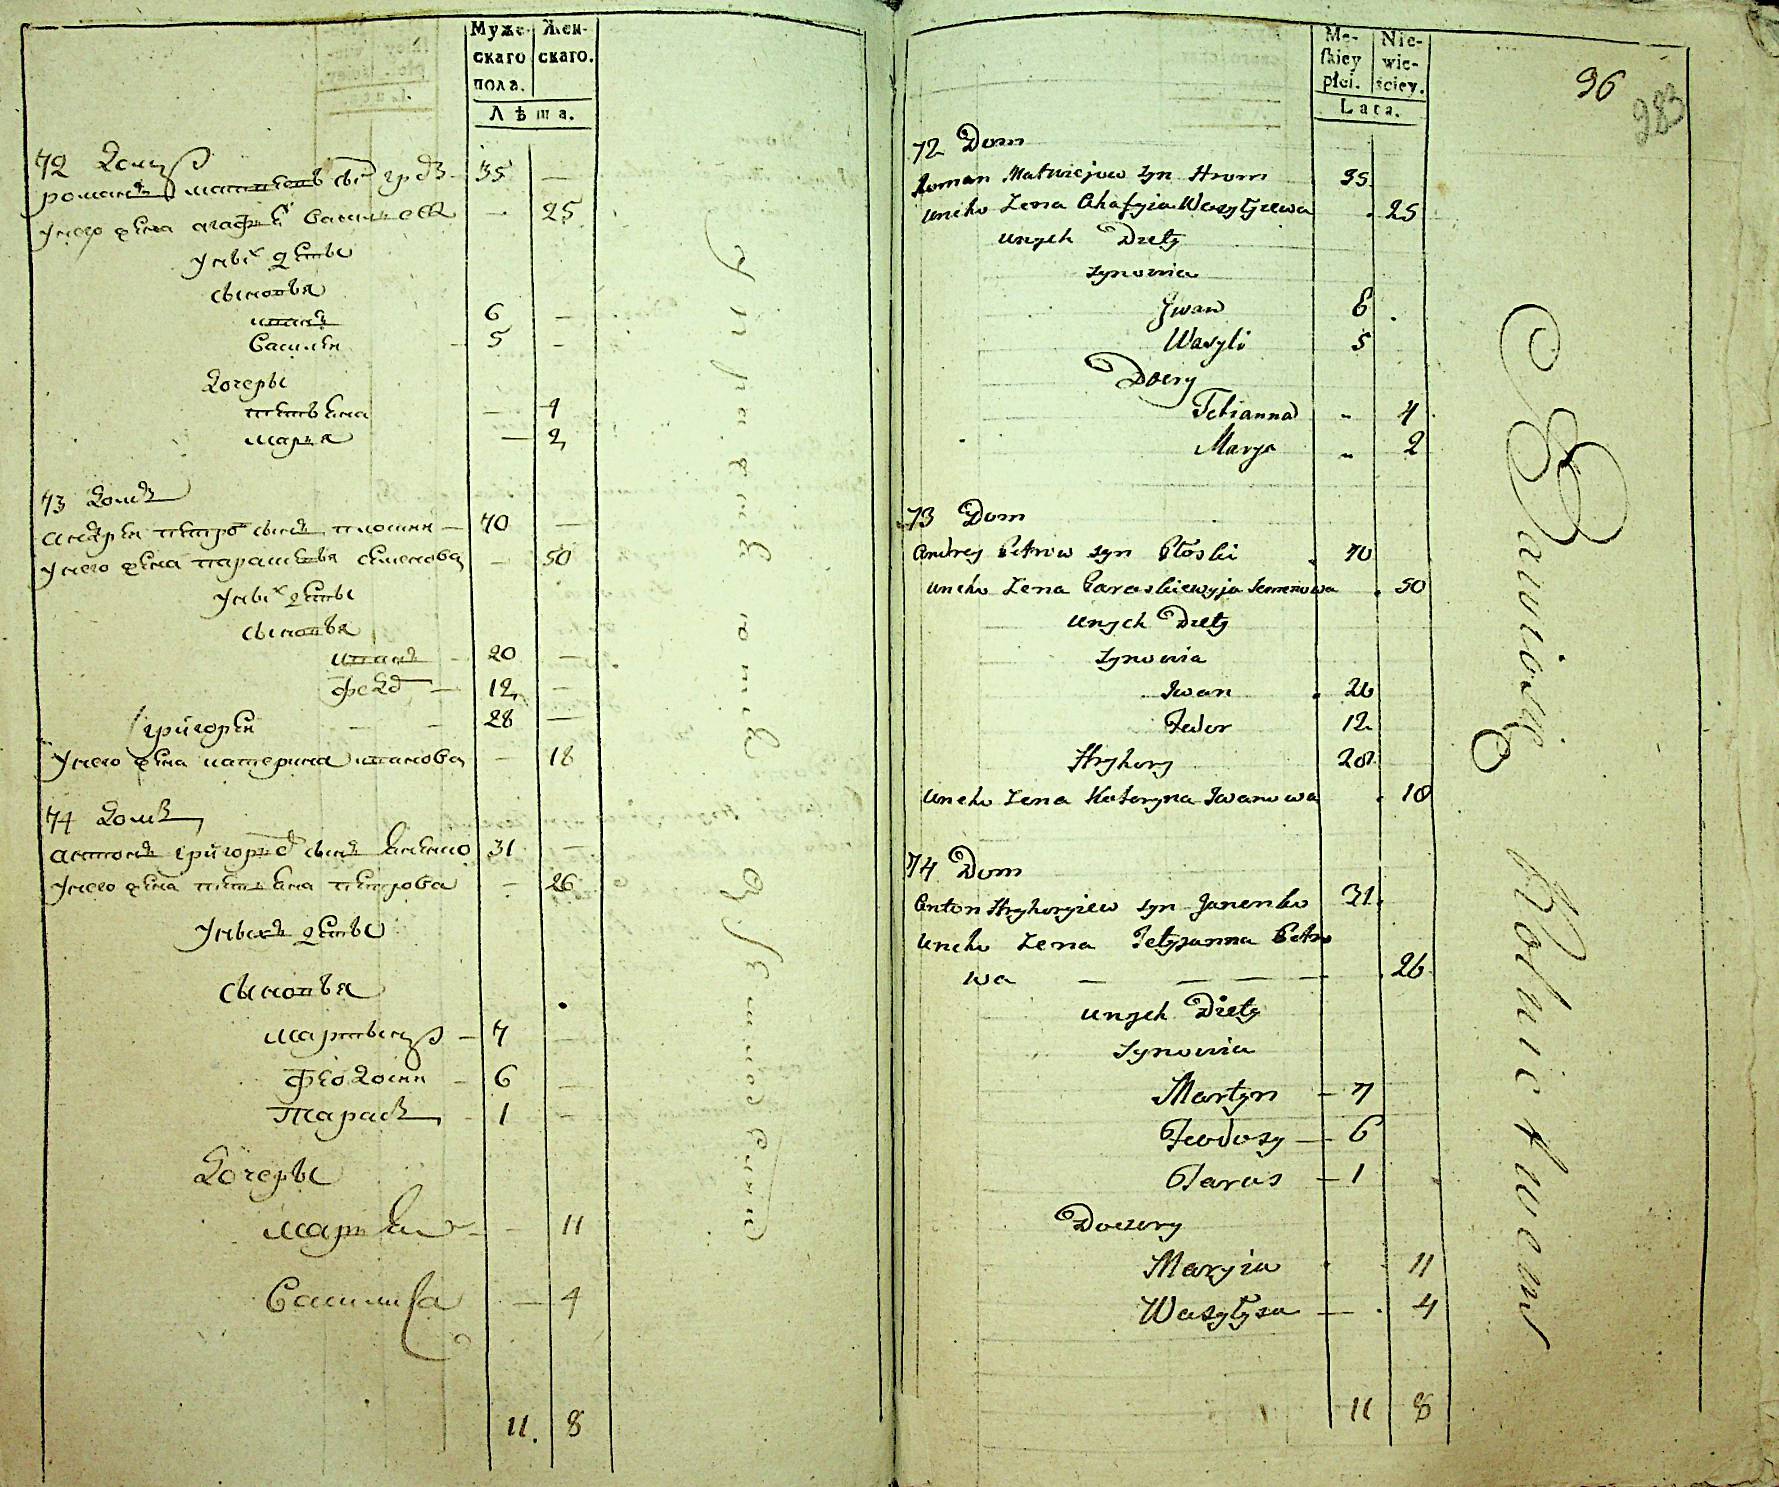 Муже-
скаго
пола.
Жен-
скаго.
Лѣта.
72 Домъ
романъ матвеевъ сынъ
35 —
у него жена агафия василева
— 25
у ныхъ дети
сыновья
иванъ 6 —
василеи 5 —
дочеры
тетьяна — 4
марья — 2
73 домъ
андреи петровъ сынъ плоскии — 70 —
у него жена парасковья семенова — 50
у ныхъ дети
сыновья
иванъ — 20 —
федоръ — 12 —
григореи — 28 —
у него жена катерина иванова — 18
74 домъ
антонъ григориевъ сынъ яненко 31 —
у него жена тетьяна петрова — 26
у ныхъ дети
сыновья
мартынъ — 7 —
феодосии — 6 —
тарасъ — 1 —
дочеры
мария — 11
василиса — 4
11. 8
Mę-
skiey
płci.
Nie-
wie-
sciey.
Lata.
96
283
72 Dom
Roman Matwiejow syn Hrom 35
uneho Zena Ahafyia Wasylyiewa 25
unych Diety
synowia
Jwan 6
Wasyli 5
Docry
Tetianna „ 4
Marya „ 2
73 Dom
Andrey Petrow syn Płoski 70
uneho Zena Paraskiewyja Semenowa 50
unych Diety
synowia
Iwan 20
Fedor 12
Hryhory 28
uneho Zena Kateryna Iwanowa 18
74 Dom
Anton Hryhoryiew syn Janenko 31
uneho Zena Tetyianna Petro
wa — — — — 26
unych Diety
Synowia
Martyn — 7
Feodosy — 6
Taras — 1
Doczery
Maryia 11
Wasyłysa — 4
11 8
Bawią się
Rolnictwem